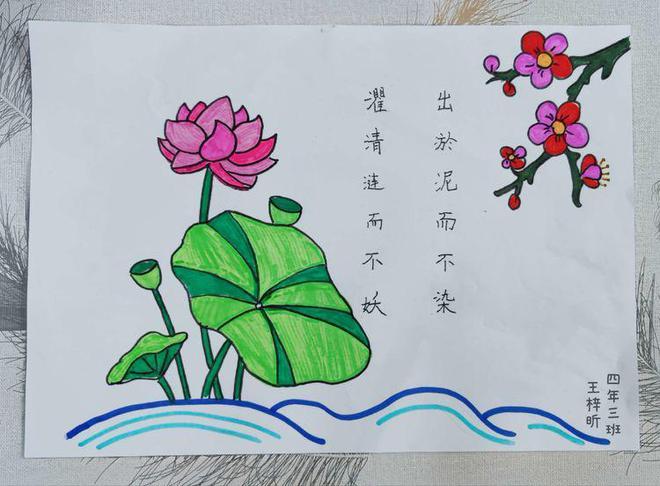 出於泥而不染
濯清涟而不妖
四年三班
王梓昕